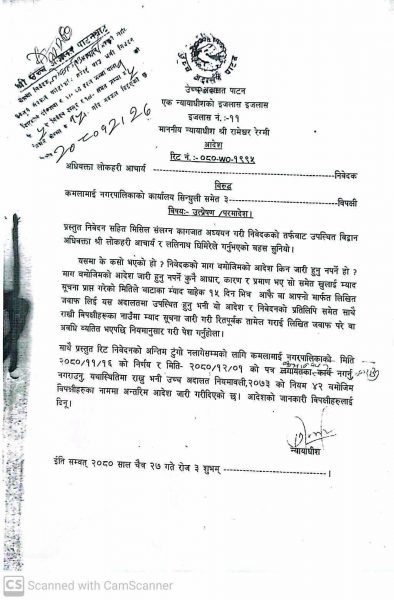 श्री उच्च अदालत पाटनबाट
२०८०।१२।२७
उच्च अदालत पाटन
एक न्यायाधीशको इजलास इजलास
इजलास नं.-११
माननीय न्यायाधीश श्री रामेश्वर रेग्मी
आदेश
रिट नं.:-०८०-WO-१११५
अधिवक्ता लोकहरी आचार्य ---------- निवेदक
विरुद्ध
कमलामाई नगरपालिकाको कार्यालय सिन्धुली समेत ३ ---------- विपक्षी
विषय:- उत्प्रेषण /परमादेश।
प्रस्तुत निवेदन सहित मिसिल संलग्न कागजात अध्ययन गरी निवेदकको तर्फबाट उपस्थित बिद्वान
अधिवक्ता श्री लोकहरी आचार्य र ललिनाथ घिमिरेले गर्नुभएको बहस सुनियो।
यसमा के कसो भएको हो ? निवेदकको माग बमोजिमको आदेश किन जारी हुनु नपर्ने हो ?
माग बमोजिमको आदेश जारी हुनु नपर्ने कुनै आधार, कारण र प्रमाण भए सो समेत खुलाई म्याद
सूचना प्राप्त गरेको मितिले बाटाका म्याद बाहेक १५ दिन भित्र आफै वा आफ्नो मार्फत लिखित
जवाफ लिई यस अदालतमा उपस्थित हुनु भनी यो आदेश र निवेदनको प्रतिलिपि समेत साथै
राखी विपक्षीहरूका नाउँमा म्याद सूचना जारी गरी रितपूर्वक तामेल गराई लिखित जवाफ परे वा
अवधि व्यतित भएपछि नियमानुसार गरी पेश गर्नुहोला।
साथै प्रस्तुत रिट निवेदनको अन्तिम टुंगो नलागेसम्मका लागि कमलामाई नगरपालिकाको मिति
२०८०/११/१६ को निर्णय र मिति- २०८०/१२/०१ को पत्र लगायतका कार्य नगर्नु
नगराउनु, यथास्थितिमा राख्नु भनी उच्च अदालत नियमावली,२०७३ को नियम ४२ बमोजिम
बिपक्षीहरुका नाममा अन्तरिम आदेश जारी गरीदिएको छ। आदेशको जानकारी विपक्षीहरुलाई
दिनू।
न्यायाधीश
ईति सम्वत् २०८० साल चैत्र २७ गते रोज ३ शुभम् ----------।
CS Scanned with CamScanner